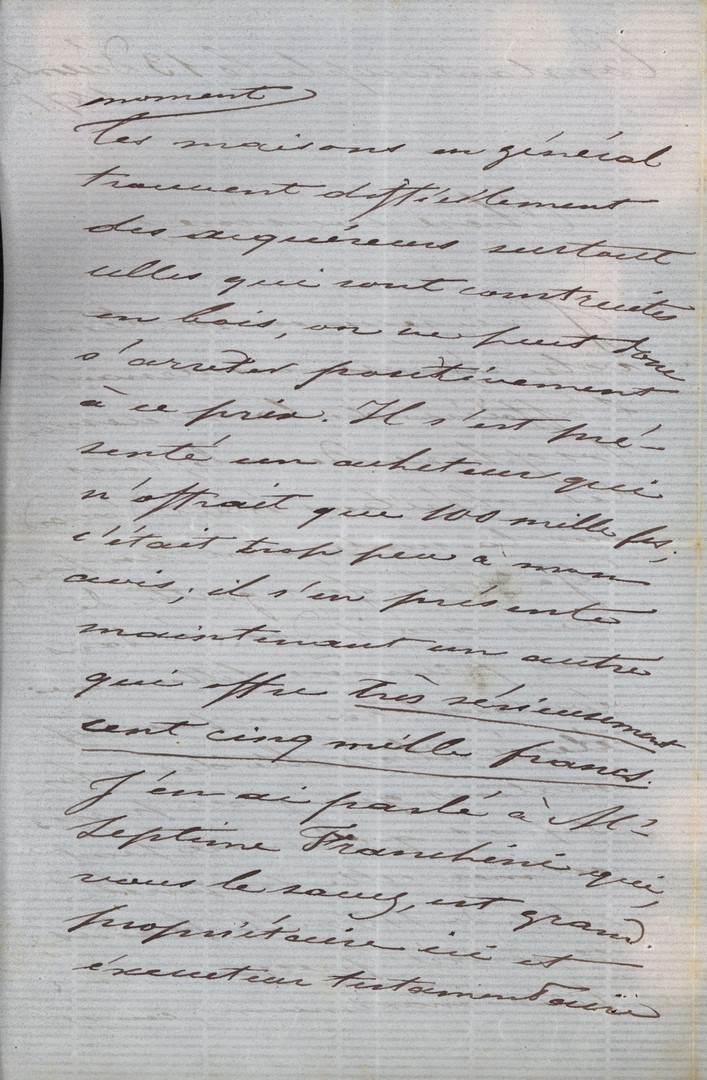 moment
Les maisons en général
trouvent difficilement
des acquéreurs surtout
celles qui sont construites
en bois, on ne peut donc
s'arrêter positivement
à ce prix. Il s'est pré-
senté un acheteur qui
n'offrait que 100 mille frs;
c'était trop peu à mon
avis; il s'en présente
maintenant un autre
qui offre très sérieusement
cent cinq mille francs.
J'en ai parlé à Mr
Septime Franchini qui,
vous le savez, est grand
propriétaire ici et
éxécuteur testamentaire